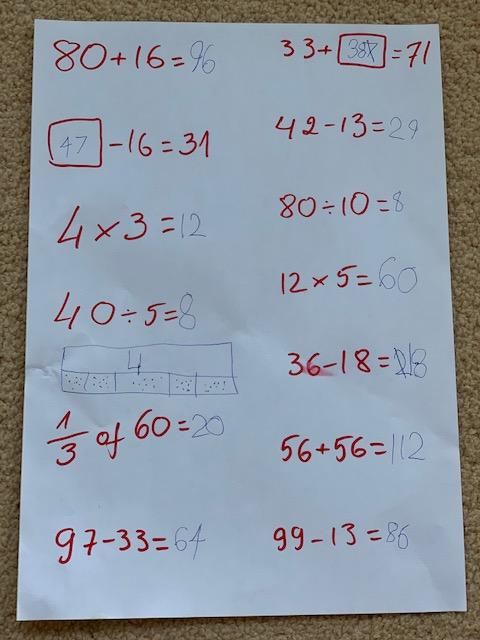 80+16=96
47-16=31
4×3=12
40÷5=8
4
1/3 of 60=20
97-33=64
33+38=71
42-13=29
80÷10=8
12×5=60
36-18=18
56+56=112
99-13=86